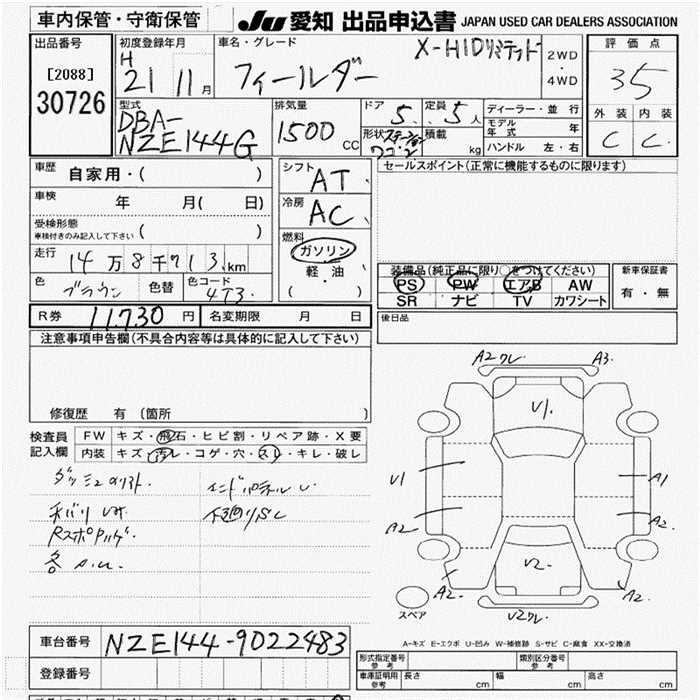 車内保管・守衛保管 JU 愛知 出品申込書 JAPAN USED CAR DEALERS ASSOCIATION
出品番号
[2088]
30726
初度登録年月
H 21 11 月
車名・グレード
フィールダー X-HIDリミテッド
2WD・4WD
評価点
35
外装 内装
C C
型式
DBA-
NZE144G
排気量
1500 CC
ドア 5
定員 5人
形状 ステーション
ワゴン
積載 kg
ディーラー・並行
モデル年式 年
ハンドル 左・右
車歴
自家用・( )
車検 年 月( 日)
受検形態
車検付きのみ記入して下さい ( )
走行
14万8千713.km
色 ブラウン 色替 色コード 4T3.
シフト AT
冷房 AC
燃料
ガソリン
軽・油
( )
セールスポイント(正常に機能するものに限ります)
装備品(純正品に限り○をつけてください)
PS PW エアB AW
SR ナビ TV カワシート
新車保証書
有・無
R券 11,730 円 名変期限 月 日
後日品
注意事項申告欄(不具合内容等は具体的に記入して下さい)
修復歴 有(箇所 )
検査員
記入欄
FW キズ・飛石・ヒビ割・リペア跡・X要
内装 キズ・汚レ・コゲ・穴・スレ・キレ・破レ
A2 ワレ A3.
V1.
V1
A1
A2
A2.
A2.
V2.
A2.
V2ワレ.
スペア
A-キズ E-エクボ U-凹み W-補修跡 S-サビ C-腐食 XX-交換済
車台番号 NZE144-9022483
登録番号
形式指定番号
参考
類別区分番号
参考
車庫証明用
参考
長さ cm 幅 cm 高さ cm